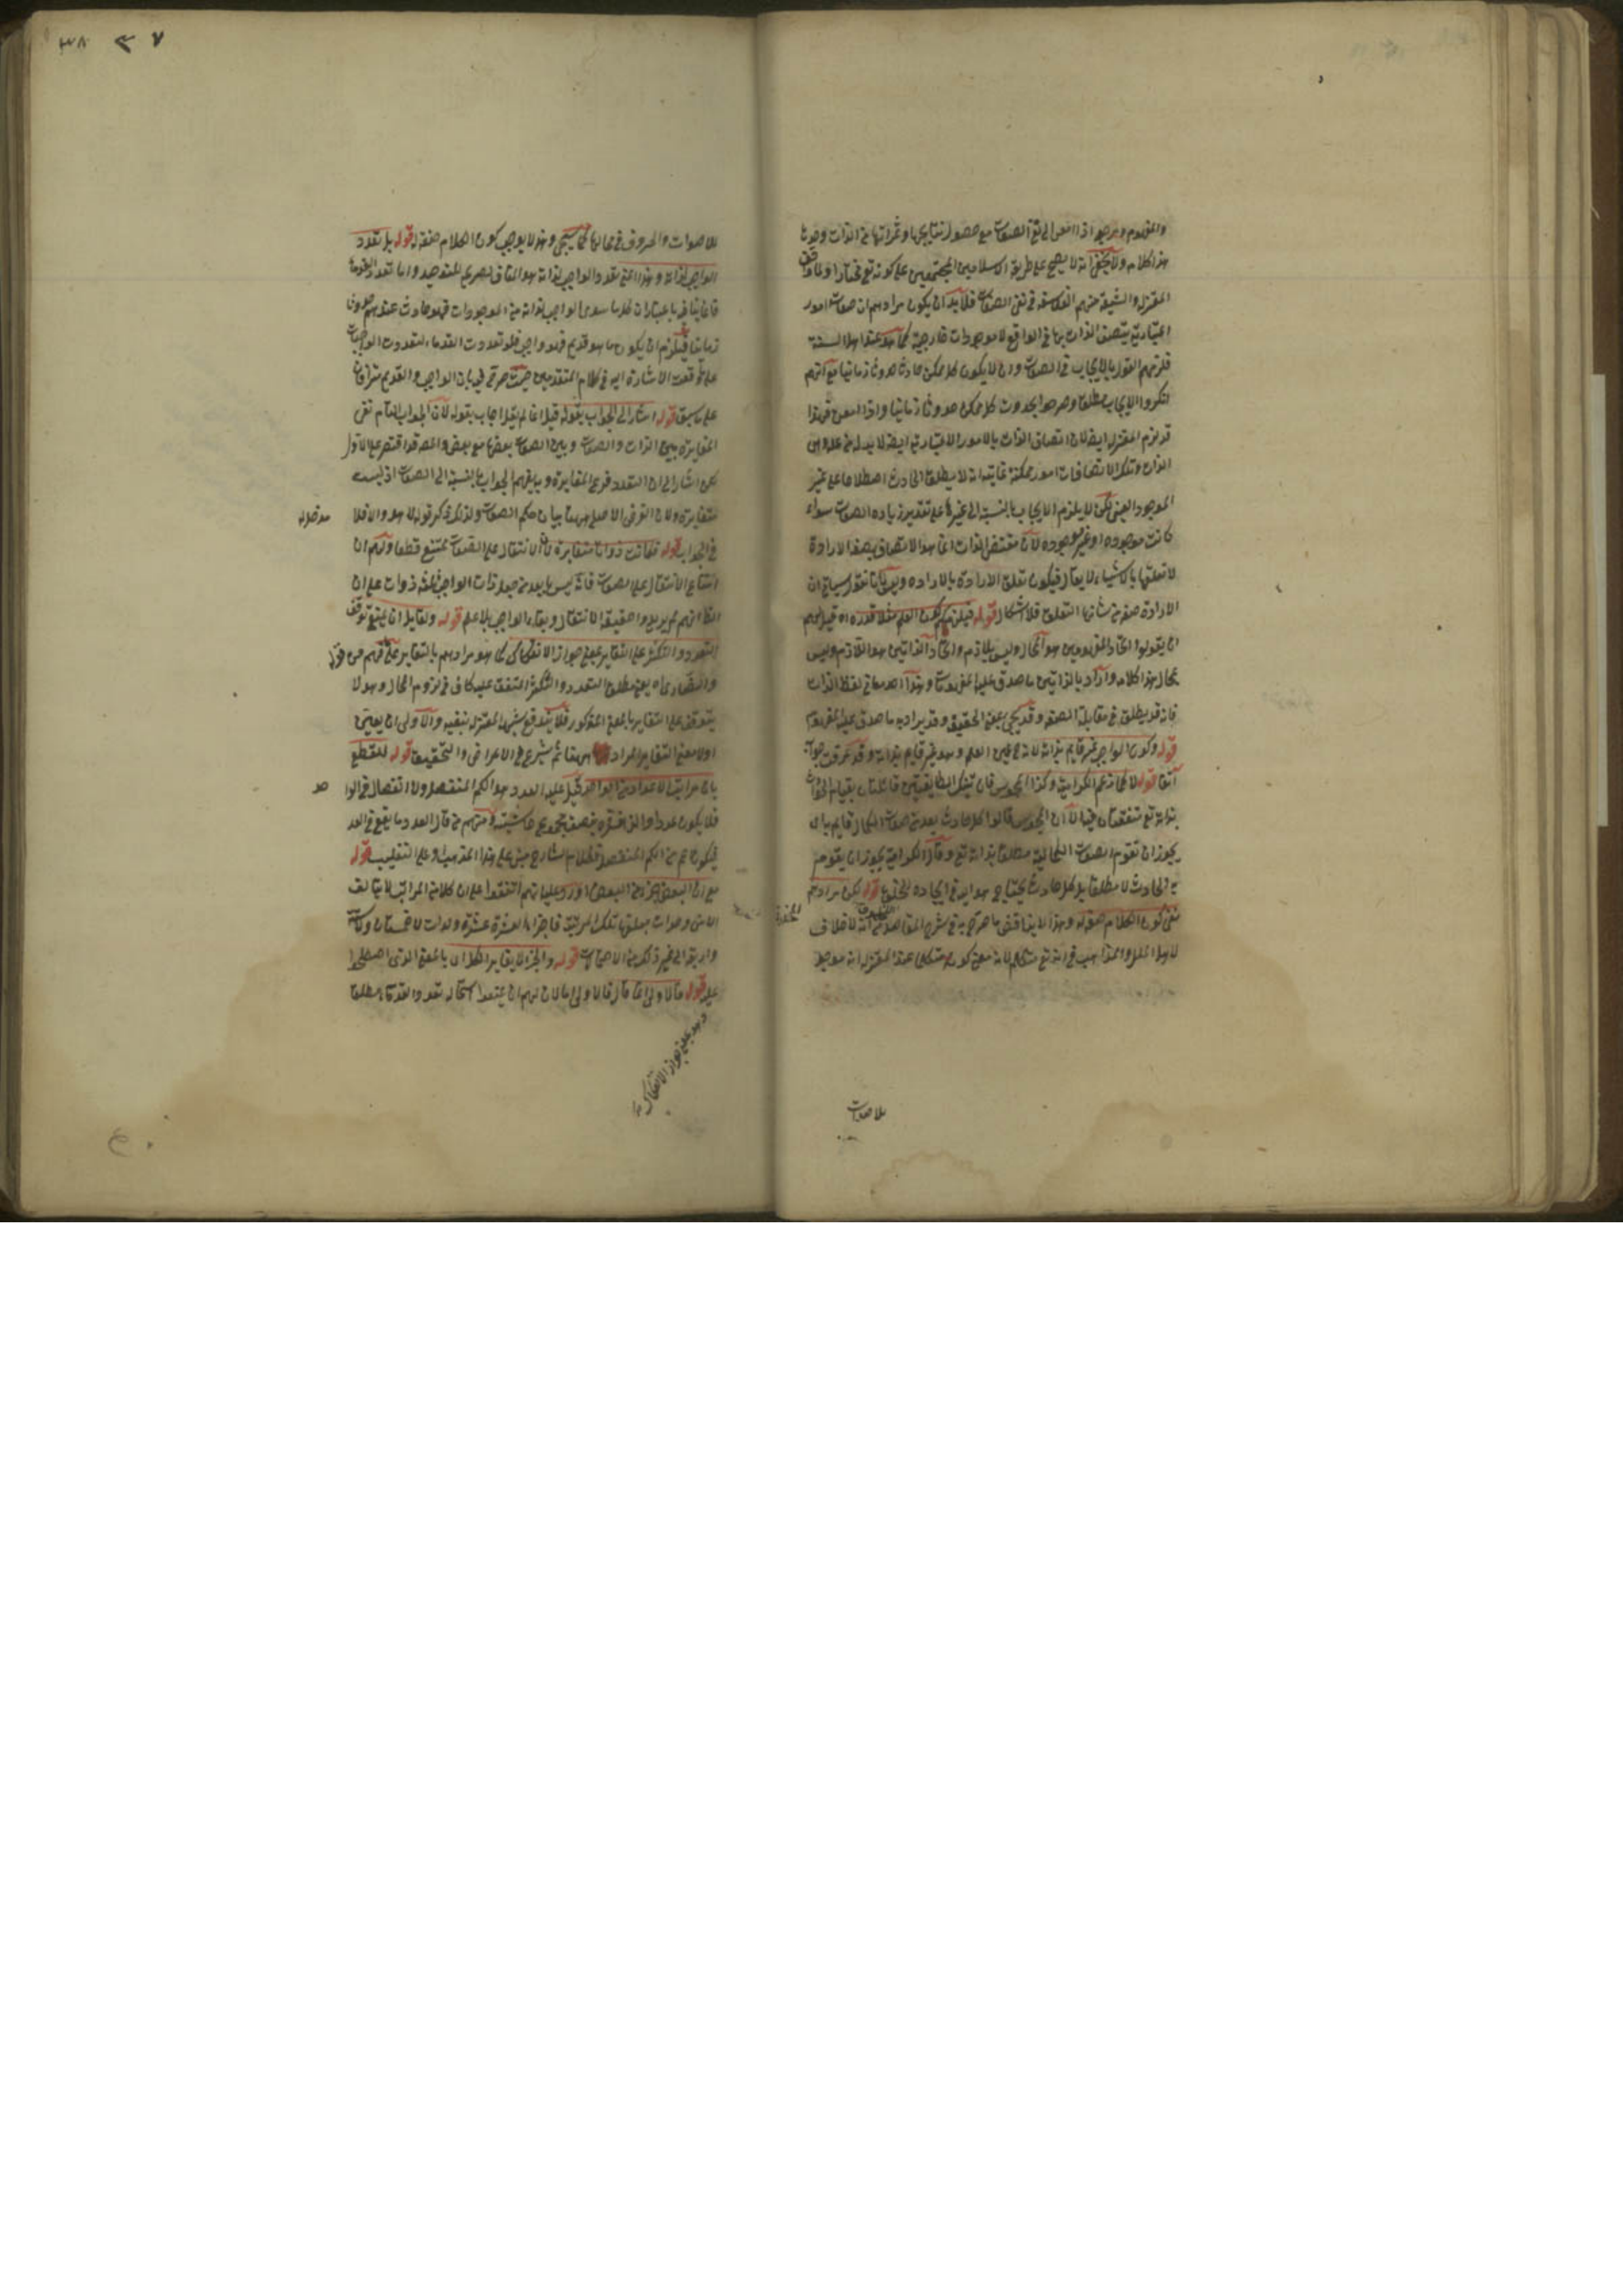 والمفهوم وبرجع اذا المعنى الى نفى الصفات مع حصول نتايجها وثمراتها من الذات وحدها
هذا الكلام ولا يخفى انه لا يصح على طريقة الاسلاميين المجتمعين على كونه تع مختارا
المعتزلة والشيعة منهم الفلاسفة في نفى الصفات فلا بد ان يكون مرادهم ان صفات امور
اعتبارية يتصف الذات بها في الواقع لا موجودات خارجية كما هو عند اهل السنة
فلزمهم القول بالايجاب في الصفات وان لا يكون كل ممكن حادثا حدوثا زمانيا مع انهم
انكروا الايجاب مطلقا وصرحوا بحدوث كل ممكن حدوثا زمانيا
قد لزم المعتزلة ايضا لان اتصاف الذات بالامور الاعتبارية ايضا لا بد له من علة وهى
الذات وتلك الاتصافات امور ممكنة غايته انه لا يطلق الحادث اصطلاحا على غير
الموجود العينى لكن لا يلزم الايجاب بالنسبة الى غيرها على تقدير زيادة الصفات سواء
كانت موجودة او غير موجودة لان مقتضى الذات انما هو الاتصاف بصفة الارادة
لا تعلقها بالاشياء لا يقال فيكون تعلق الارادة بالارادة
الارادة صفة من شانها التعلق فلا اشكال قوله فيلزمكم كون العلم مثلا قدرة اه قيل لهم
ان يقولوا اتحاد المفهومين هو المحال وليس بلازم واتحاد الذاتين هو اللازم وليس
بمحال هذا كلامه واراد بالذاتين ما صدق عليه المفهومان
فانه قد يطلق في مقابلة الصفة وقد يجئ بمعنى الحقيقة وقد يراد به ما صدق عليه المفهوم
قوله وكون الواجب غير قايم بذاته لانه عين العلم وهو غير قايم بذاته وقد عرفت جوابه
آنفا قوله لا كما زعم الكرامية وكذا المجوس فان تينك الطايفتين قائلتان بقيام الحوادث
بذاته تع متفقتان فيها الا ان المجوس قالوا كل حادث يعد من صفات الكمال قايم به اى
يجوز ان تقوم الصفات الكمالية مطلقا بذاته تع وقال الكرامية يجوز ان يقوم
به الحادث لا مطلقا بل كل حادث يحتاج هو اليه في ايجاده للخلق قوله لكن مرادهم
نفى كون الكلام صفة له وهذا لا يناقض ما صرح به في شرح المقاصد من انه لا خلاف
لاهل الملل والمذاهب في انه تع متكلم لان معنى كونه متكلما عند المعتزلة انه موجد
للاصوات
للاصوات والحروف في محالها كما سيجئ وهذا لا يوجب كون الكلام صفة له قوله بل تعدد
الواجب لذاته وهذا اعنى تعدد الواجب لذاته هو المنافى لصريح التوحيد واما تعدد القدماء
فانما ينافيه باعتبار ان كل ما سوى الواجب لذاته من الموجودات فهو حادث عندهم حدوثا
زمانيا فيلزم ان يكون ما هو قديم فهو واجب فلو تعددت القدماء لتعددت الواجبات
على ما وقعت الاشارة اليه في كلام المتقدمين حيث صرح في بان الواجب والقديم مترادفان
على ما سبق قوله اشار الى الجواب بقوله قيل انما لم يقل اجاب بقوله لان الجواب التام نفى
المغايرة بين الذات والصفات وبين الصفات بعضها مع بعض والمص قد اقتصر على الاول
لكن اشار الى ان التعدد فرع المغايرة وبه يفهم الجواب بالنسبة الى الصفات اذ ليست
متغايرة ولان الغرض الاصلى ههنا بيان حكم الصفات ولذلك ذكر قوله لا هو والا فلا
في الجواب قوله فكانت ذوات متغايرة لان الانتقال على الصفات ممتنع قطعا
امتناع الانتقال على الصفات فانه ليس بابعد من جعل ذات الواجب ثلثة ذوات على ان
الظ انهم لم يريدوا حقيقة الانتقال وبقاء الواجب بلا علم قوله ولقايل ان يمنع توقف
التعدد والتكثر على التغاير بمعنى جواز الانفكاك كما هو مرادهم بالتغاير على ما فهم من قوله
والنصارى اه يعنى مطلق التعدد والتكثر المتفق عليه كاف في لزوم المحال وهو لا
يتوقف على التغاير بالمعنى المذكور فلا يندفع شبهة المعتزلة بنفيه والاولى ان يعين
اولا معنى التغاير المراد ههنا ثم يشرع في الاعراض والتحقيق قوله للقطع
بان مراتب الاعداد من الواحد قيل عليه العدد هو الكم المنفصل ولا انفصال في الوا
فلا يكون عددا والذى فسره بنصف مجموع حاشيتيه ومنهم من قال العدد ما يقع في العد
فيكون اعم من الكم المنفصل فكلام الشارح مبنى على هذا المذهب او على التغليب قوله
مع ان البعض جزء من البعض اورد عليه انهم اتفقوا على ان كلا من المراتب لا يتالف
الا من وحدات مبلغها تلك المرتبة فاجزاء العشرة عشرة وحدات لا خمستان
واربعة الى غير ذلك من الاحتمالات قوله والجزء لا يغاير الكل اى بالمعنى الذى اصطلحوا
عليه قوله فالاولى انما قال فالاولى اه لان لهم ان يمنعوا استحالة تعدد القدماء مطلقا
وهو بمعنى جواز الانفكاك